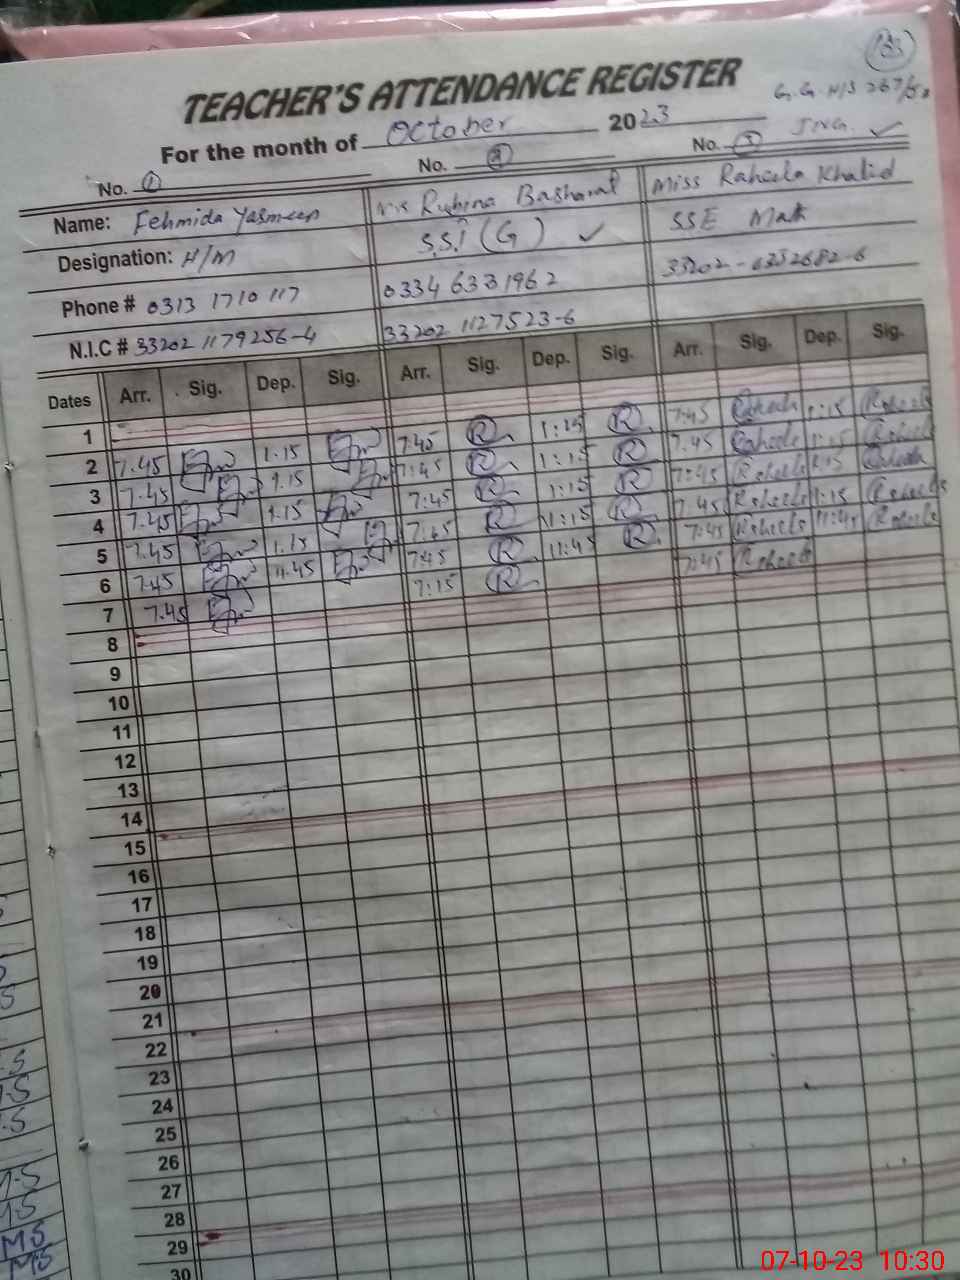 TEACHER'S ATTENDANCE REGISTER
For the month of October 2023
G.G.H/S 267/
No. 1 No. 2 No. 3
Name: Fehmida Yasmeen Rubina Basharat Miss Raheela Khalid
Designation: H/M S.S.T (G) ✓ SSE Math
Phone # 0313 1710 117 0334 6331962 33202-6352682-6
N.I.C # 33202 1179256-4 33202 1127523-6
Dates Arr. Sig. Dep. Sig. Arr. Sig. Dep. Sig. Arr. Sig. Dep. Sig.
1
2 7.45 1.15 7:45 R 1:15 R 7:45 Raheela 1:15 Raheela
3 7.45 1.15 7:45 R 1:15 R 7:45 Raheela 1:15 Raheela
4 7.45 1.15 7:45 R 1:15 R 7:45 Raheela 1:15 Raheela
5 7.45 1.15 7:45 R 1:15 R 7:45 Raheela 1:15 Raheela
6 7.45 11.45 7:45 R 11:45 R 7:45 Raheela 11:45 Raheela
7 7.45 7:15 R 7:45 Raheela
8
9
10
11
12
13
14
15
16
17
18
19
20
21
22
23
24
25
26
27
28
29
30
07-10-23 10:30